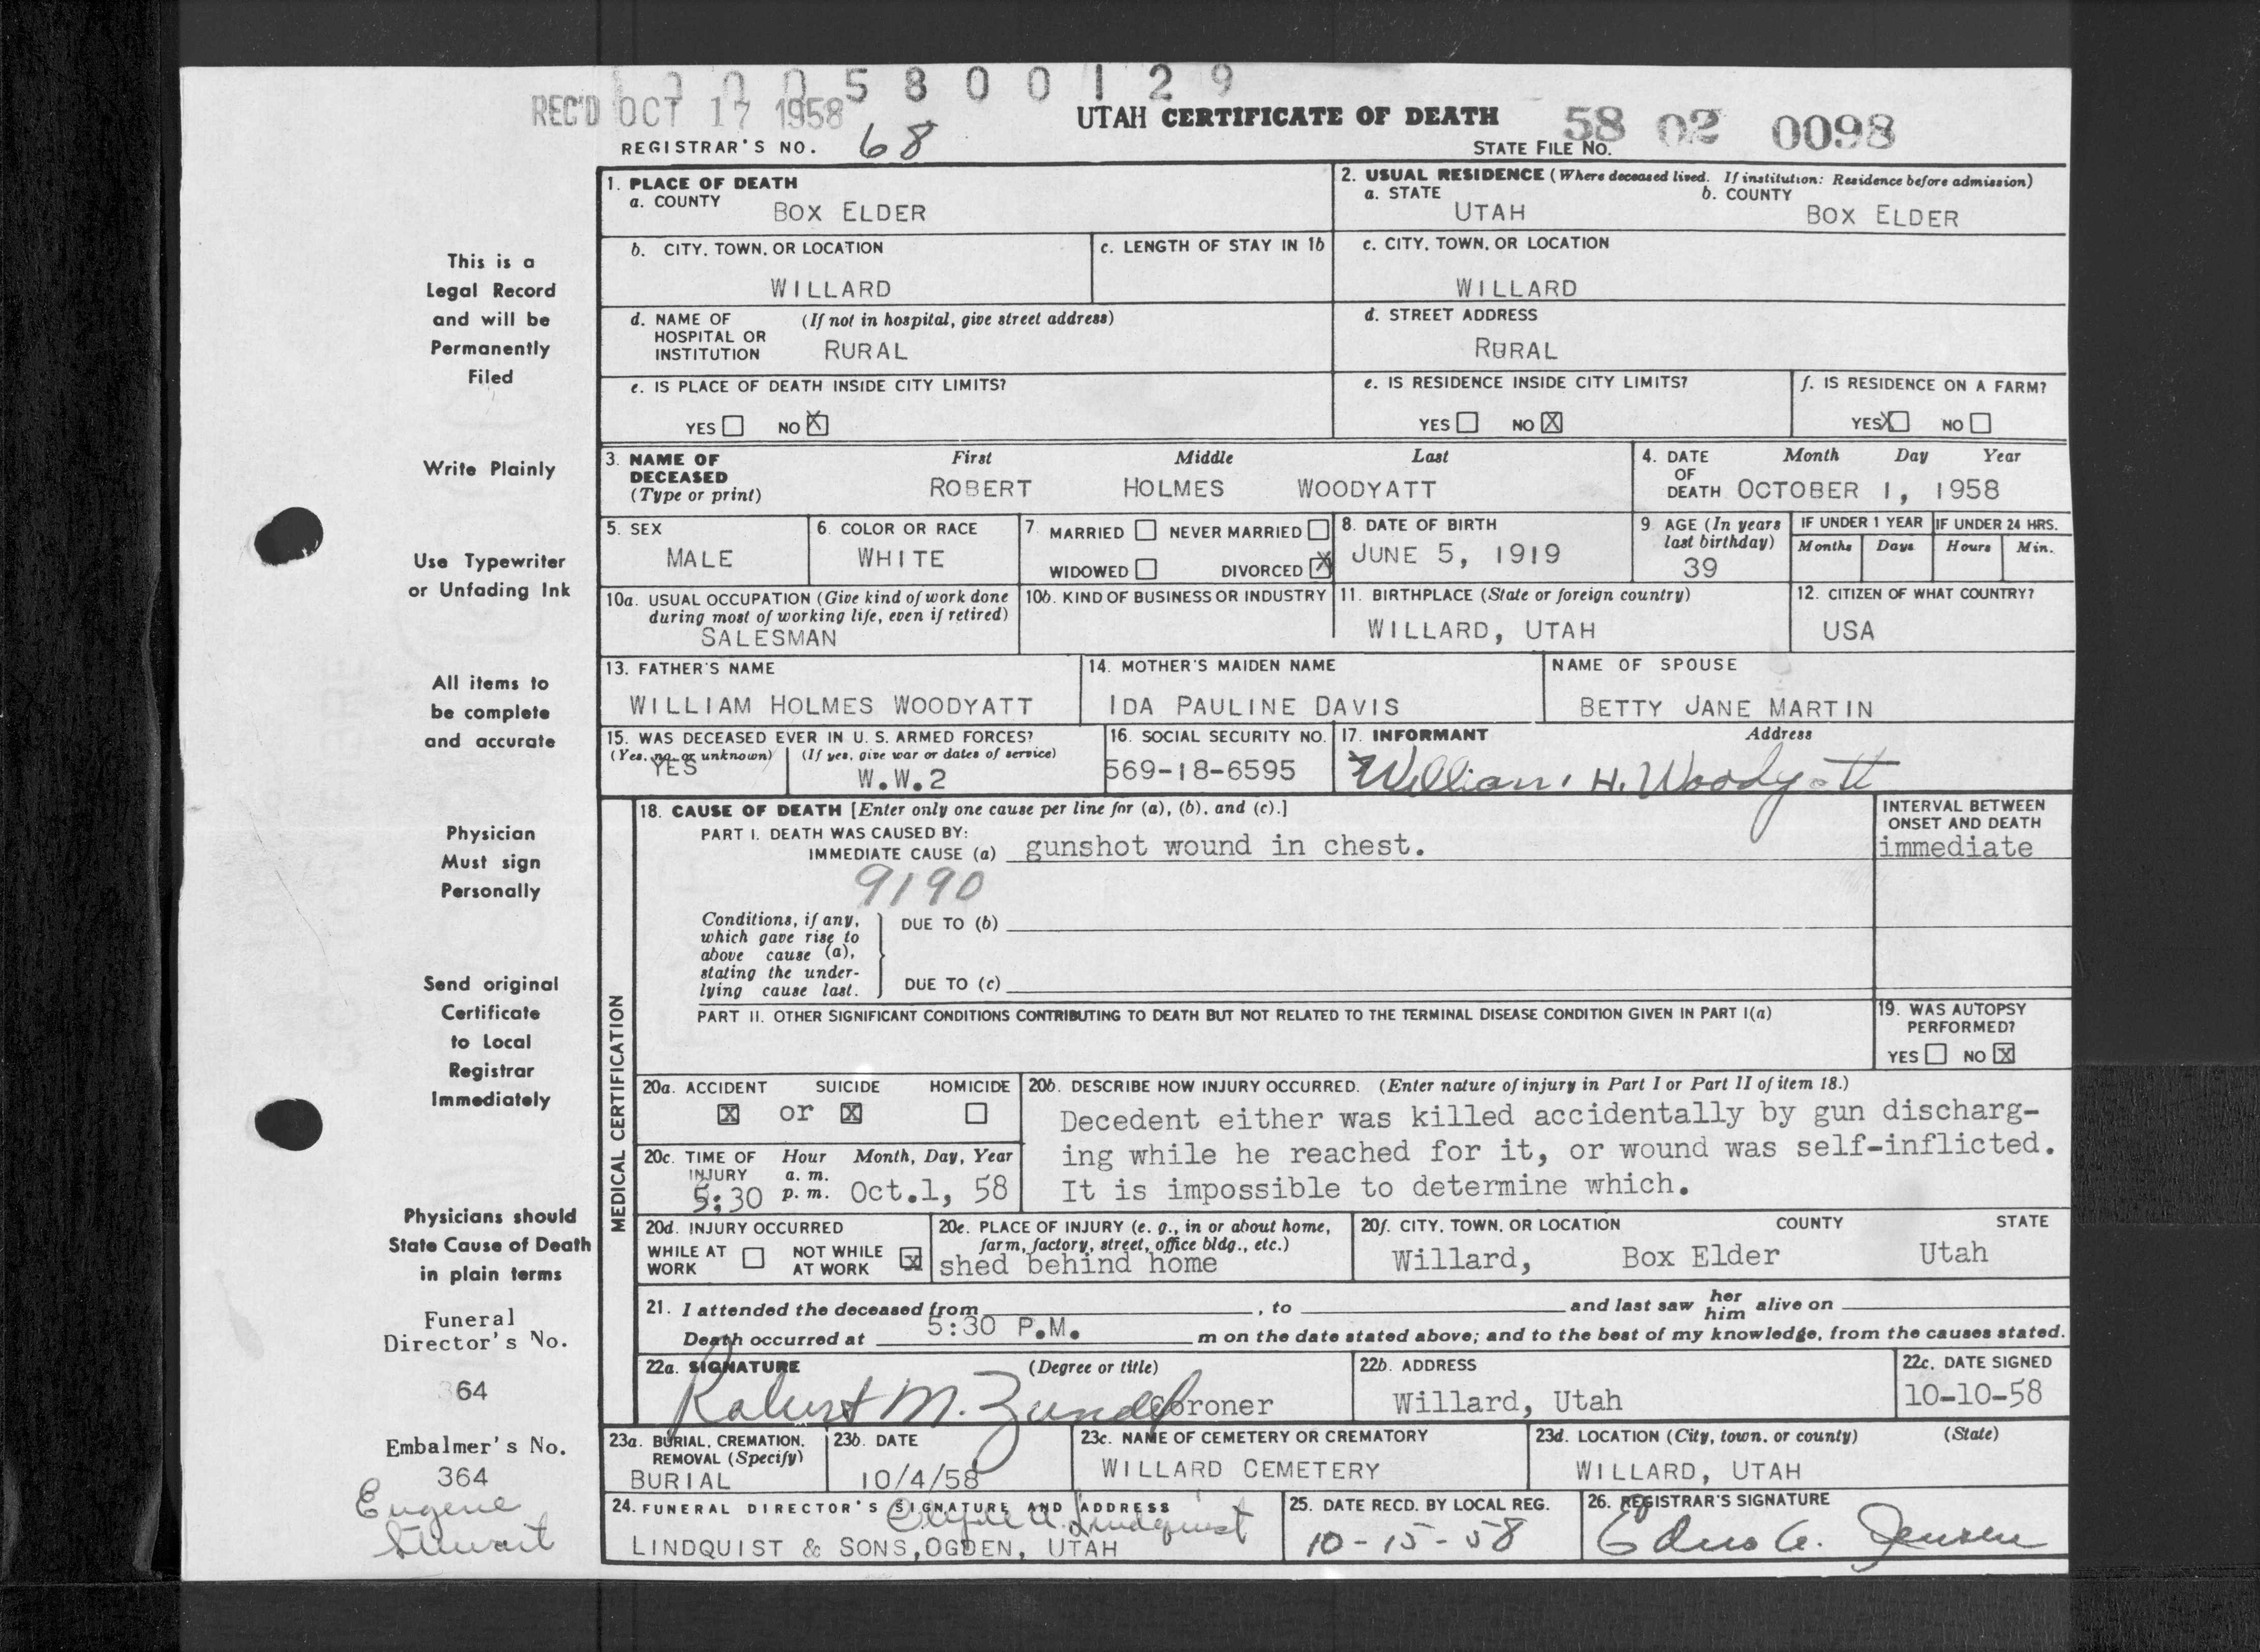 0005800129
REC'D OCT 17 1958
UTAH CERTIFICATE OF DEATH
58 02 0098
REGISTRAR'S NO. 68
STATE FILE NO.
This is a
Legal Record
and will be
Permanently
Filed
Write Plainly
Use Typewriter
or Unfading Ink
All items to
be complete
and accurate
Physician
Must sign
Personally
Send original
Certificate
to Local
Registrar
Immediately
Physicians should
State Cause of Death
in plain terms
Funeral
Director's No.
364
Embalmer's No.
364
Eugene
Stewart
1. PLACE OF DEATH
a. COUNTY
BOX ELDER
2. USUAL RESIDENCE (Where deceased lived. If institution: Residence before admission)
a. STATE
UTAH
b. COUNTY
BOX ELDER
b. CITY, TOWN, OR LOCATION
WILLARD
c. LENGTH OF STAY IN 1b
c. CITY, TOWN, OR LOCATION
WILLARD
d. NAME OF HOSPITAL OR INSTITUTION
(If not in hospital, give street address)
RURAL
d. STREET ADDRESS
RURAL
e. IS PLACE OF DEATH INSIDE CITY LIMITS?
YES NO X
e. IS RESIDENCE INSIDE CITY LIMITS?
YES NO X
f. IS RESIDENCE ON A FARM?
YES X NO
3. NAME OF DECEASED
(Type or print)
First Middle Last
ROBERT HOLMES WOODYATT
4. DATE OF DEATH
Month Day Year
OCTOBER 1, 1958
5. SEX
MALE
6. COLOR OR RACE
WHITE
7. MARRIED NEVER MARRIED
WIDOWED DIVORCED X
8. DATE OF BIRTH
JUNE 5, 1919
9. AGE (In years last birthday)
39
IF UNDER 1 YEAR
Months Days
IF UNDER 24 HRS.
Hours Min.
10a. USUAL OCCUPATION (Give kind of work done
during most of working life, even if retired)
SALESMAN
10b. KIND OF BUSINESS OR INDUSTRY
11. BIRTHPLACE (State or foreign country)
WILLARD, UTAH
12. CITIZEN OF WHAT COUNTRY?
USA
13. FATHER'S NAME
WILLIAM HOLMES WOODYATT
14. MOTHER'S MAIDEN NAME
IDA PAULINE DAVIS
NAME OF SPOUSE
BETTY JANE MARTIN
15. WAS DECEASED EVER IN U. S. ARMED FORCES?
(Yes, no, or unknown) (If yes, give war or dates of service)
YES W.W.2
16. SOCIAL SECURITY NO.
569-18-6595
17. INFORMANT Address
William H. Woodyatt
MEDICAL CERTIFICATION
18. CAUSE OF DEATH [Enter only one cause per line for (a), (b), and (c).]
PART I. DEATH WAS CAUSED BY:
IMMEDIATE CAUSE (a) gunshot wound in chest.
INTERVAL BETWEEN
ONSET AND DEATH
immediate
9190
Conditions, if any,
which gave rise to
above cause (a),
stating the under-
lying cause last.
DUE TO (b)
DUE TO (c)
PART II. OTHER SIGNIFICANT CONDITIONS CONTRIBUTING TO DEATH BUT NOT RELATED TO THE TERMINAL DISEASE CONDITION GIVEN IN PART I(a)
19. WAS AUTOPSY
PERFORMED?
YES NO X
20a. ACCIDENT SUICIDE HOMICIDE
X or X
20b. DESCRIBE HOW INJURY OCCURRED. (Enter nature of injury in Part I or Part II of item 18.)
Decedent either was killed accidentally by gun discharg-
ing while he reached for it, or wound was self-inflicted.
It is impossible to determine which.
20c. TIME OF INJURY
Hour Month, Day, Year
a. m.
5:30 p. m. Oct.1, 58
20d. INJURY OCCURRED
WHILE AT WORK NOT WHILE AT WORK X
20e. PLACE OF INJURY (e. g., in or about home,
farm, factory, street, office bldg., etc.)
shed behind home
20f. CITY, TOWN, OR LOCATION COUNTY STATE
Willard, Box Elder Utah
21. I attended the deceased from , to and last saw her him alive on
Death occurred at 5:30 P.M. m on the date stated above; and to the best of my knowledge, from the causes stated.
22a. SIGNATURE (Degree or title)
Robert M. Zundel Coroner
22b. ADDRESS
Willard, Utah
22c. DATE SIGNED
10-10-58
23a. BURIAL, CREMATION,
REMOVAL (Specify)
BURIAL
23b. DATE
10/4/58
23c. NAME OF CEMETERY OR CREMATORY
WILLARD CEMETERY
23d. LOCATION (City, town, or county) (State)
WILLARD, UTAH
24. FUNERAL DIRECTOR'S SIGNATURE AND ADDRESS
Lindquist
LINDQUIST & SONS, OGDEN, UTAH
25. DATE RECD. BY LOCAL REG.
10-15-58
26. REGISTRAR'S SIGNATURE
Jensen